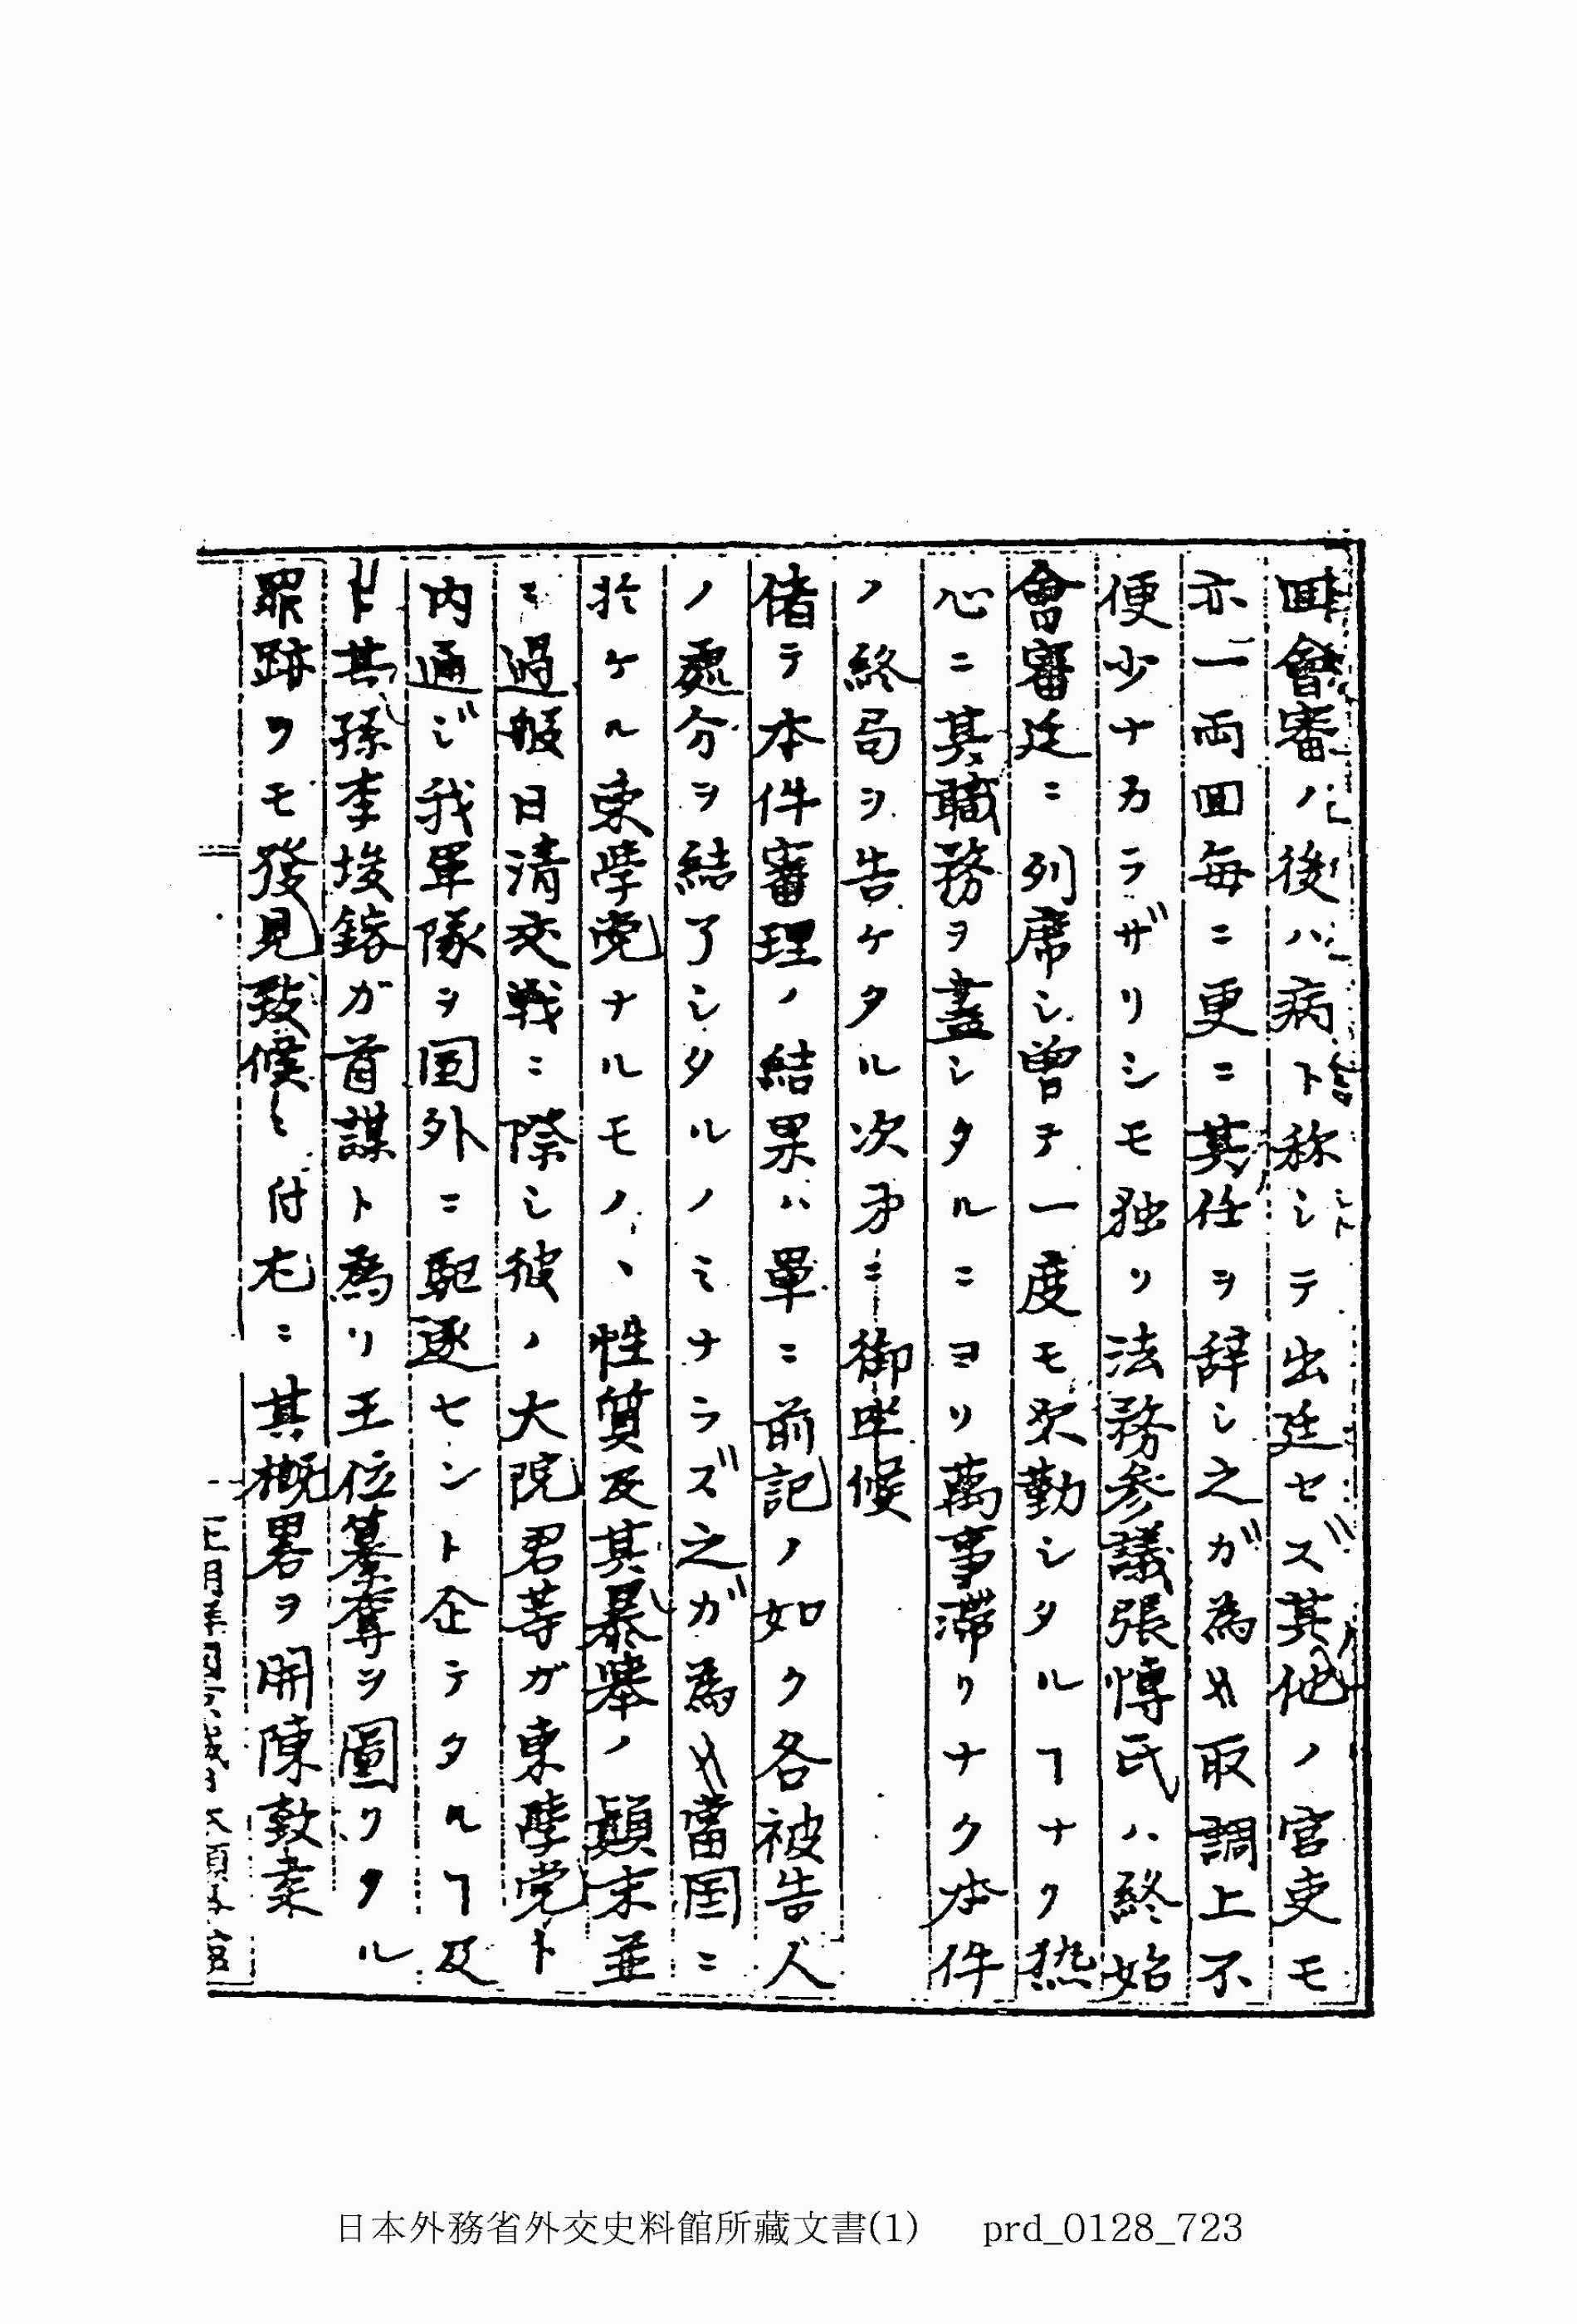 回會審ノ後ハ病ト称シテ出廷セズ其他ノ官吏モ
亦一両回毎ニ更ニ其任ヲ辞シ之ガ為メ取調上不
便少ナカラザリシモ独リ法務参議張博氏ハ終始
會審廷ニ列席シ曽テ一度モ欠勤シタルヿナク熱
心ニ其職務ヲ盡シタルニヨリ萬事滞リナク本件
ノ終局ヲ告ケタル次第ニ御座候
偖テ本件審理ノ結果ハ単ニ前記ノ如ク各被告人
ノ處分ヲ結了シタルノミナラズ之ガ為メ當国ニ
於ケル東學党ナルモノヽ性質及其暴挙ノ顛末並
ニ過般日清交戦ニ際シ彼ノ大院君等ガ東學党ト
内通ジ我軍隊ヲ国外ニ駆逐セント企テタルヿ及
ト其孫李埈鎔ガ首謀ト為リ王位簒奪ヲ圖リタル
罪跡ヲモ發見致候ニ付左ニ其概畧ヲ開陳致候
日本外務省外交史料館所藏文書(1) prd_0128_723